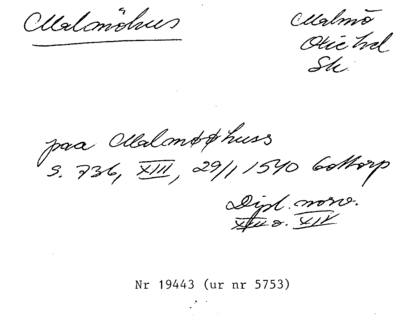 Malmöhus
Malmö
Oxie hd
Sk.
paa Malmøøhuss
S. 736, XIII, 29/1 1540 Gottorp
Dipl. norv.
XIII o. XIV
Nr 19443 (ur nr 5753)